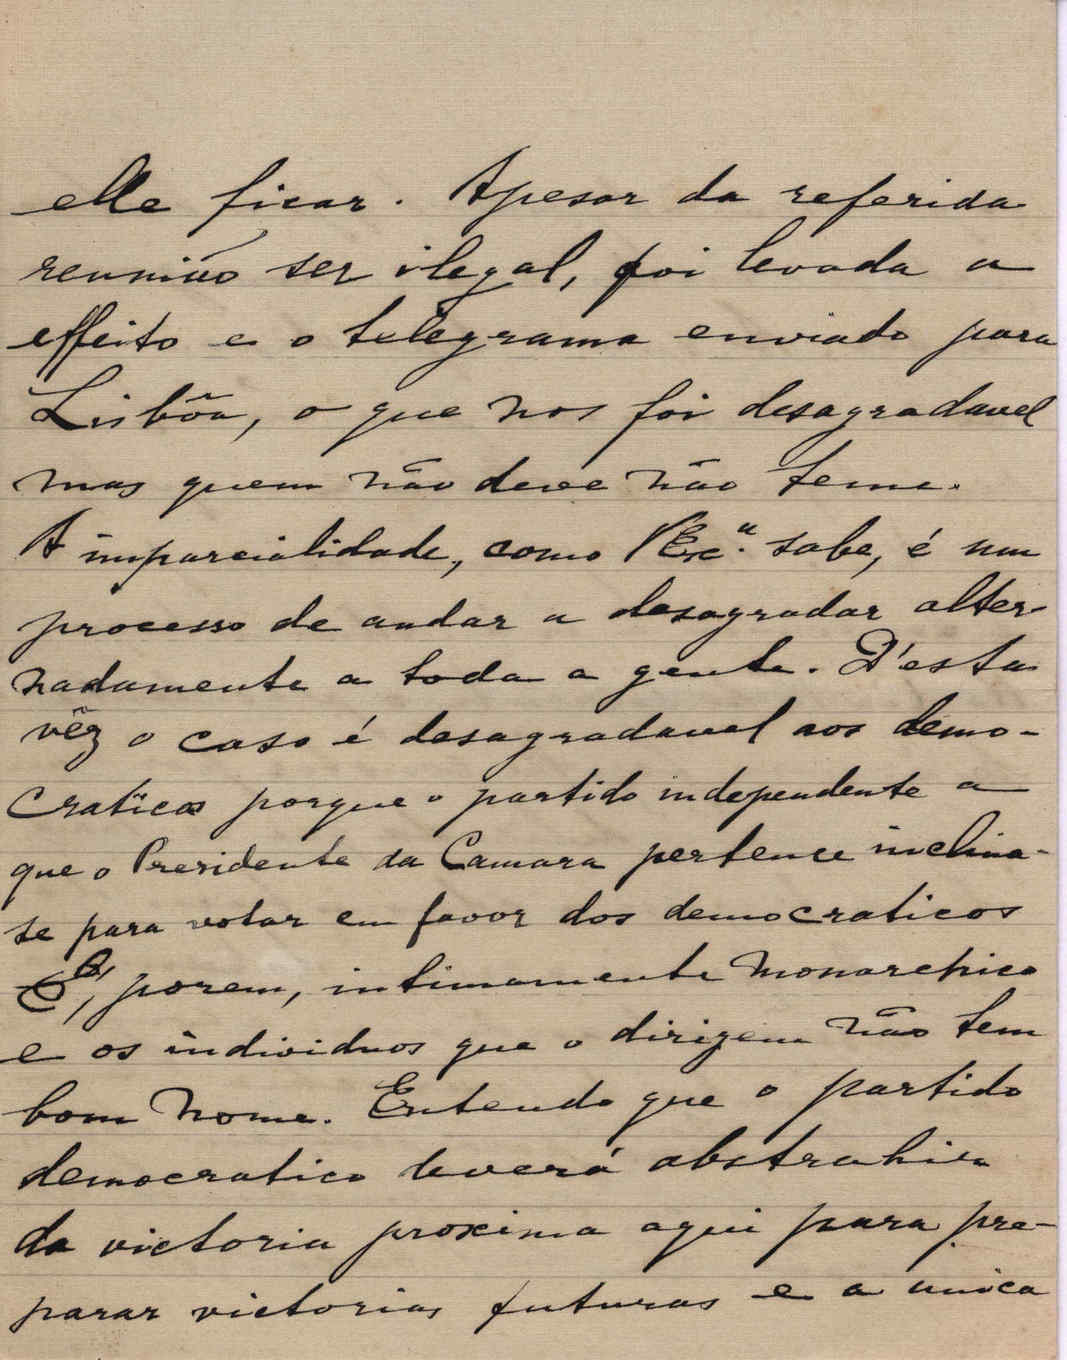 elle ficar. Apesar da referida
reunião ser ilegal, foi levada a
effeito e o telegrama enviado para
Lisbôa, o que nos foi desagradavel
mas quem não deve não teme.
A imparcialidade, como VExª. sabe, é um
processo de andar a desagradar alter-
nadamente a toda a gente. D'esta
vêz o caso é desagradavel aos demo-
craticos porque o partido independente a
que o Presidente da Camara pertence inclina-
se para votar em favor dos democraticos
E', porem, intimamente monarchico
e os individuos que o dirigem não tem
bom nome. Entendo que o partido
democratico deverá abstrahir
da victoria proxima aqui para pre-
parar victorias futuras e a unica